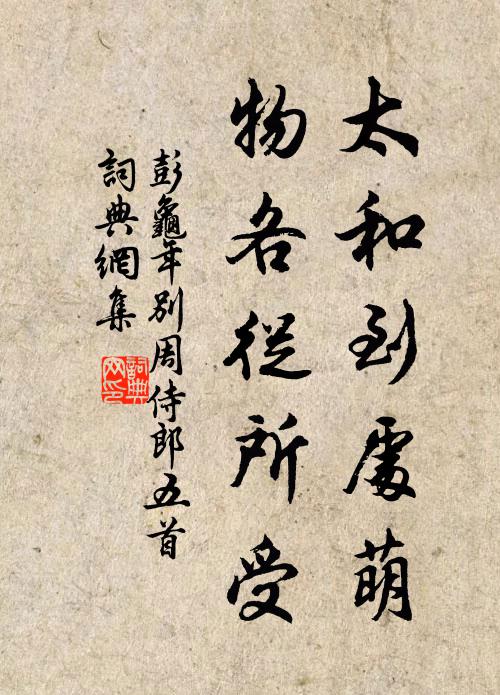 太和到處萌
物各從所受
彭龜年別周侍郎五首
詞典網集
詞典網印